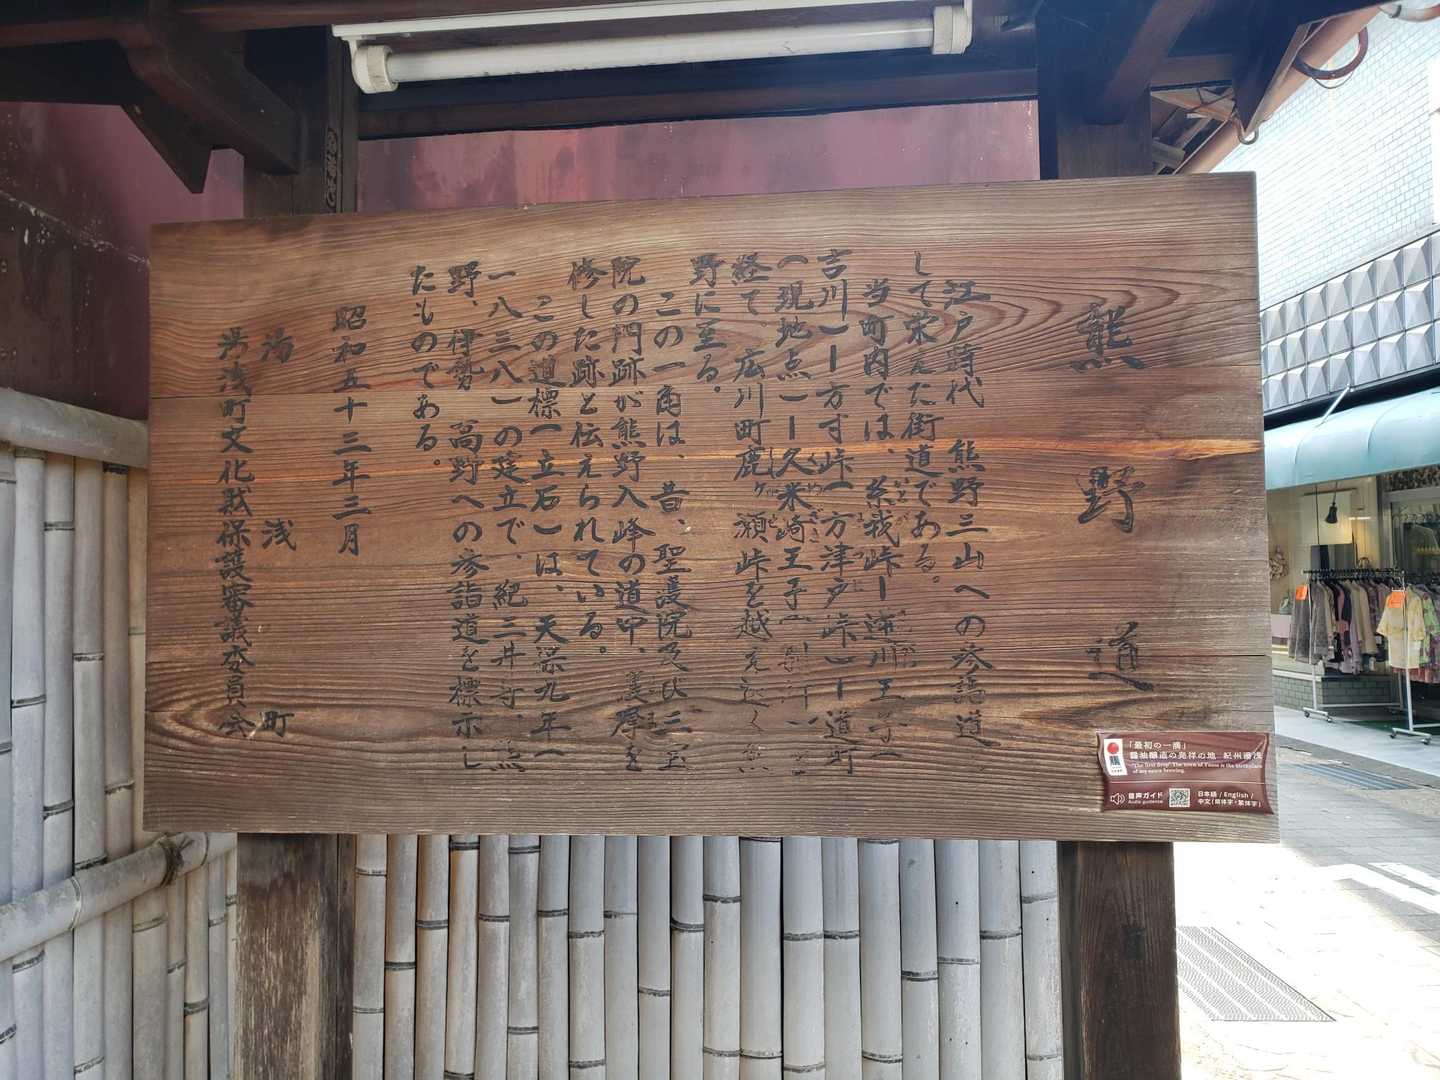 熊野道
江戸時代 熊野三山への参詣道
して栄えた街道である。
当町内では、糸我峠ー逆川王子(
吉川)ー方寸峠(方津戸峠)ー道町
(現地点)ー久米崎王子(
経て、広川町鹿ヶ瀬峠を越え遠く熊
野に至る。
この一角は、昔、聖護院及び三宝
院の門跡が熊野入峰の道中、護摩を
修した跡と伝えられている。
この道標(立石)は、天保九年(
一八三八)の建立で、紀三井寺、熊
野、伊勢、高野への参詣道を標示し
たものである。
昭和五十三年三月
湯浅町
湯浅町文化財保護審議委員会
「最初の一滴」
醤油醸造の発祥の地 紀州湯浅
"The first drop": The town of Yuasa is the birthplace
of soy sauce brewing.
音声ガイド
Audio guidance
日本語 / English /
中文(简体字・繁体字)